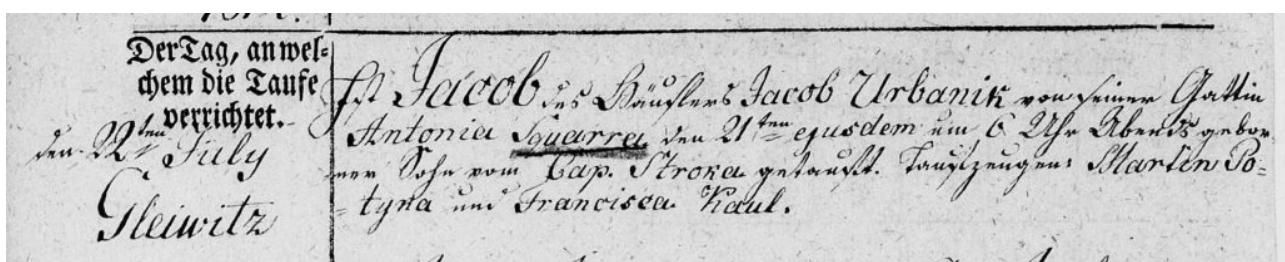 Der Tag, an wel-
chem die Taufe
verrichtet.
den 22ten July
Gleiwitz
Ist Jacob des Häuslers Jacob Urbanik von seiner Gattin
Antonia Squarra den 21ten ejusdem um 6 Uhr Abends gebor
ner Sohn vom Cap. Stroka getauft. Taufzeugen: Martin Po-
tyka und Francisca Kaul.